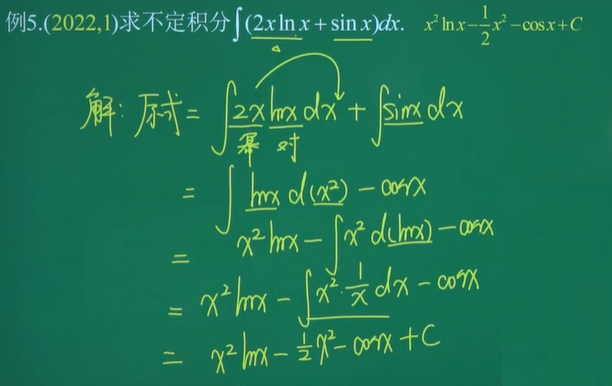 例5.(2022,1)求不定积分∫(2x ln x + sin x)dx. x² ln x − 1/2 x² − cos x + C
解: 原式 = ∫2x lnx dx + ∫sinx dx
幂 对
= ∫ lnx d(x²) − cosx
= x² lnx − ∫x² d(lnx) − cosx
= x² lnx − ∫x²·1/x dx − cosx
= x² lnx − 1/2 x² − cosx + C